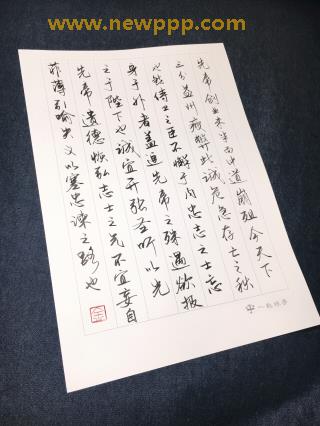 www.newppp.com
先帝创业未半而中道崩殂今天下
三分益州疲弊此诚危急存亡之秋
也然侍卫之臣不懈于内忠志之士忘
身于外者盖追先帝之殊遇欲报
之于陛下也诚宜开张圣听以光
先帝遗德恢弘志士之气不宜妄自
菲薄引喻失义以塞忠谏之路也